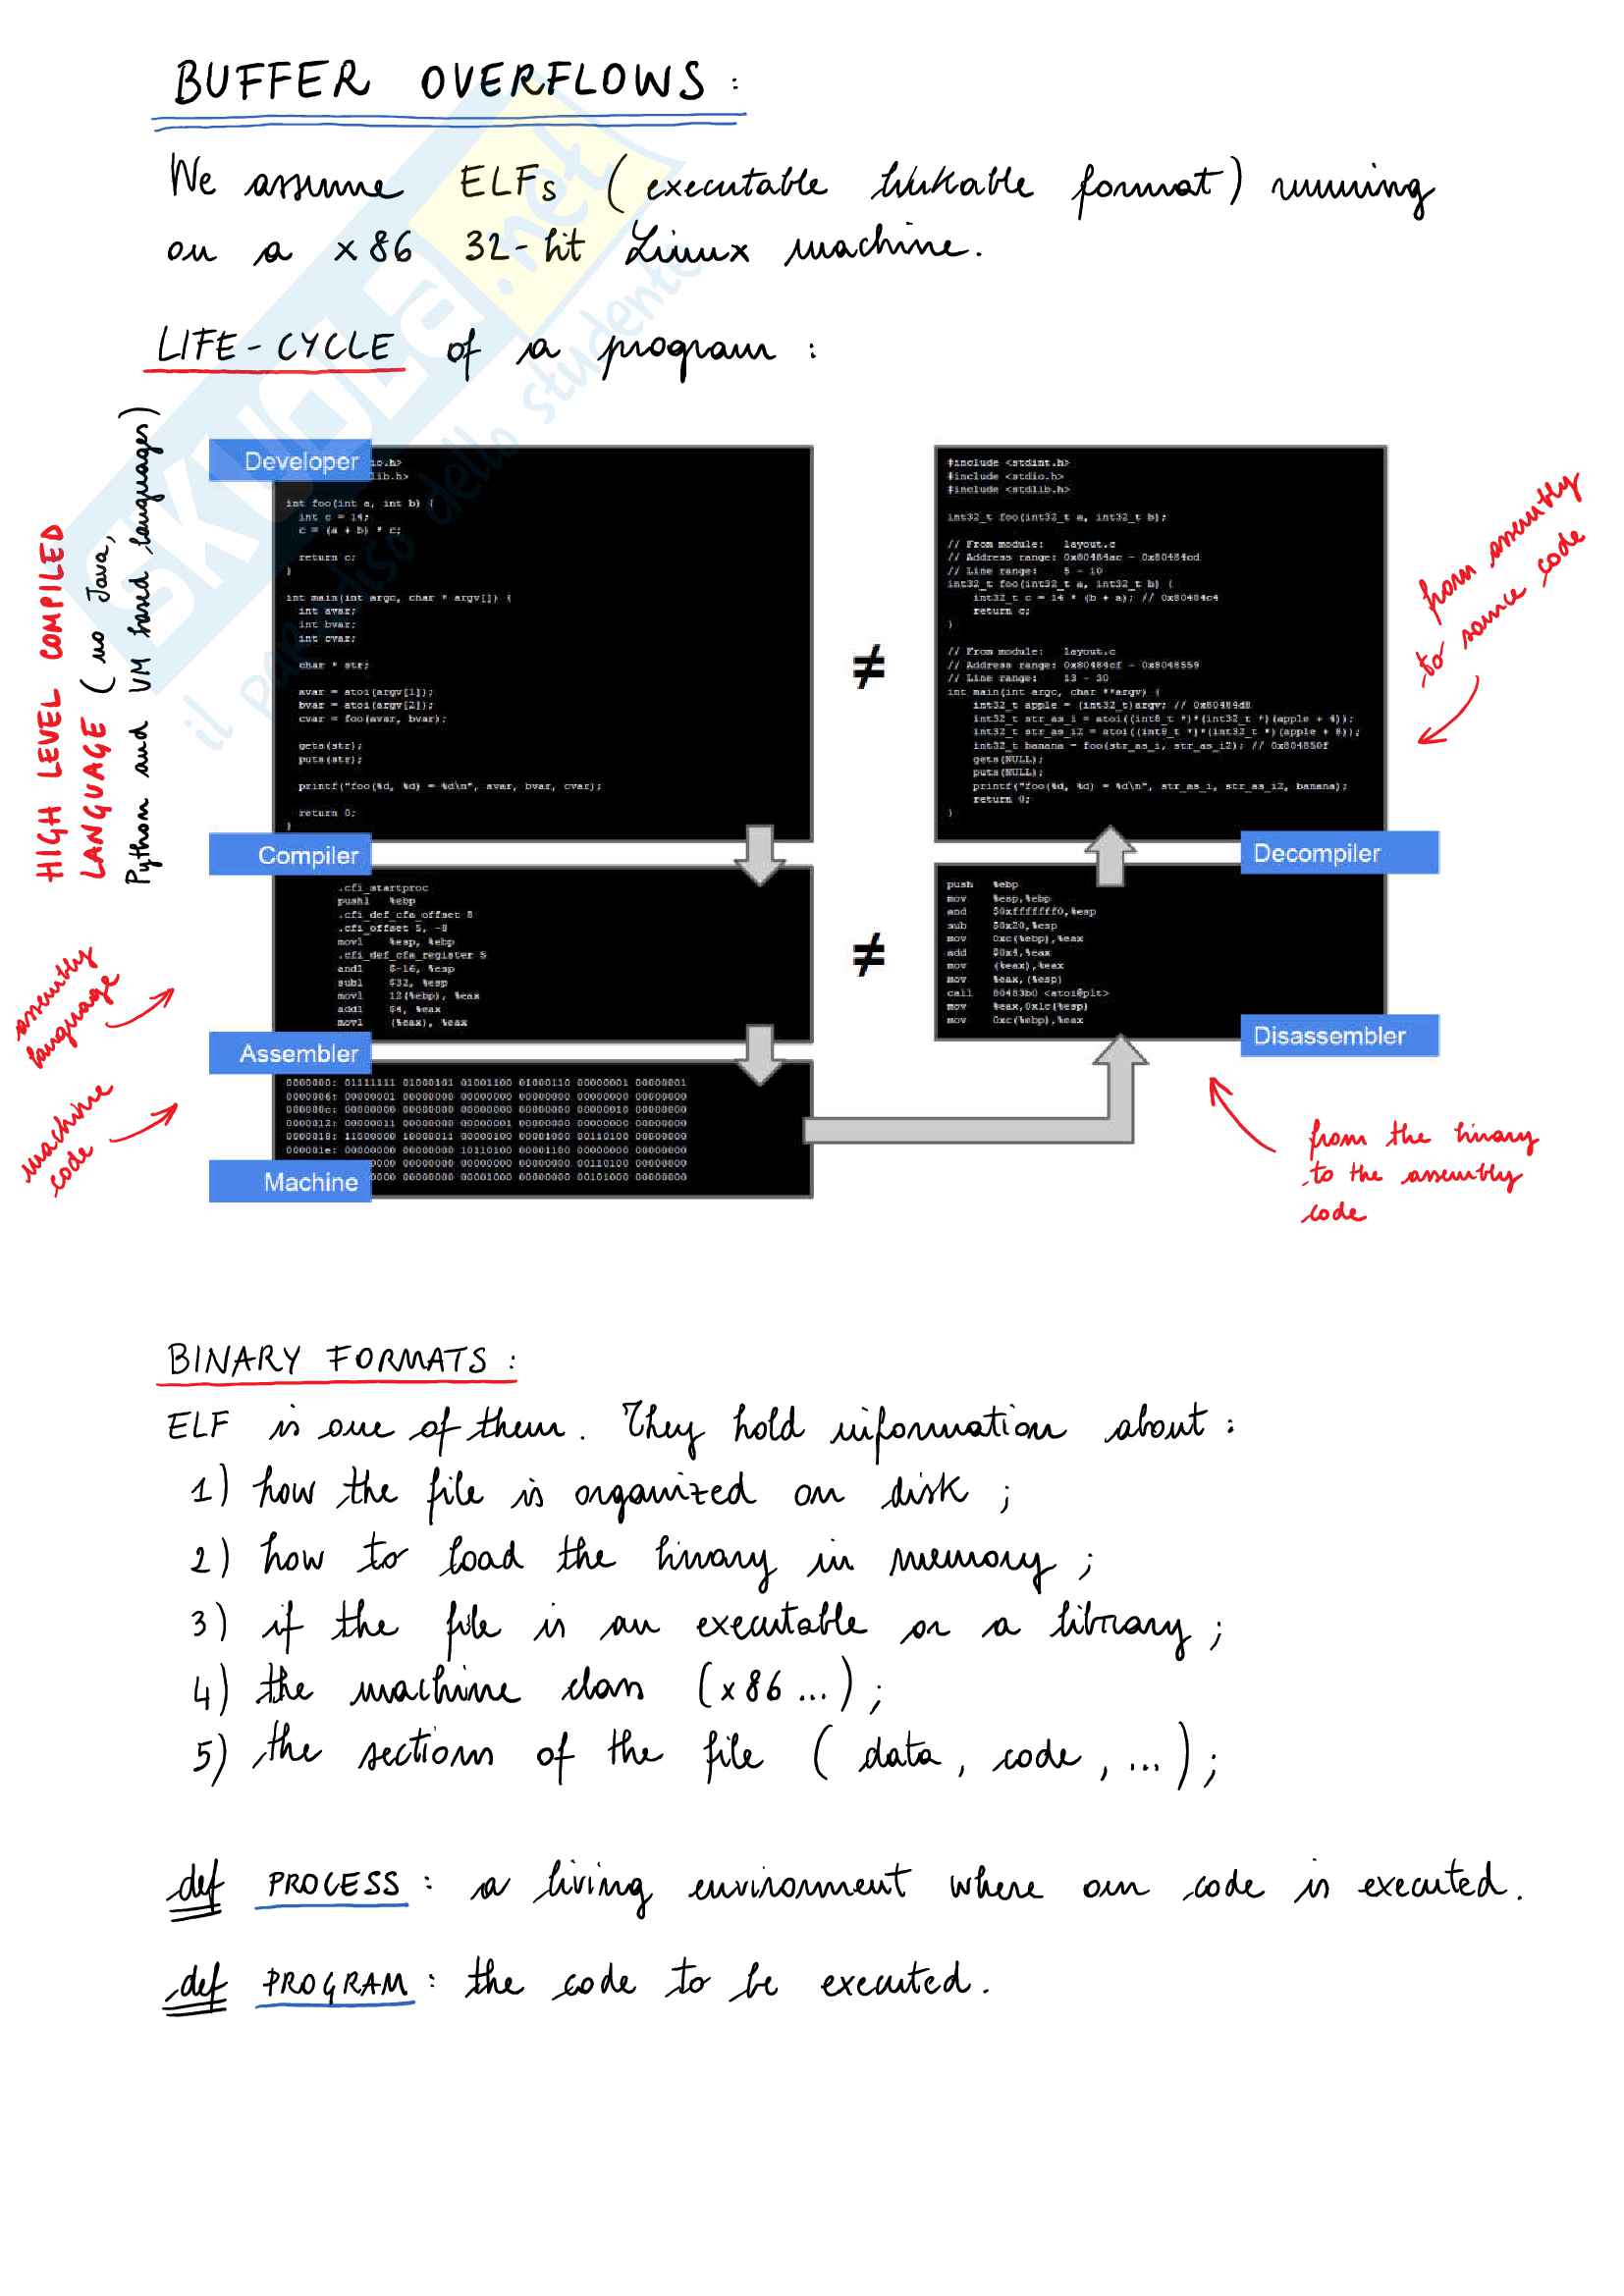 BUFFER OVERFLOWS :
We assume ELFs (executable linkable format) running
on a x86 32-bit Linux machine.
LIFE-CYCLE of a program :
HIGH LEVEL COMPILED
LANGUAGE ( no Java,
Python and VM based languages)
Developer
io.h>
lib.h>
int foo(int a, int b) {
int c = 14;
c = (a + b) * c;
return c;
}
int main(int argc, char * argv[]) {
int avar;
int bvar;
int cvar;
char * str;
avar = atoi(argv[1]);
bvar = atoi(argv[2]);
cvar = foo(avar, bvar);
gets(str);
puts(str);
printf("foo(%d, %d) = %d\n", avar, bvar, cvar);
return 0;
}
≠
#include <stdint.h>
#include <stdio.h>
#include <stdlib.h>
int32_t foo(int32_t a, int32_t b);
// From module: layout.c
// Address range: 0x80484ac - 0x80484cd
// Line range: 5 - 10
int32_t foo(int32_t a, int32_t b) {
int32_t c = 14 * (b + a); // 0x80484c4
return c;
}
// From module: layout.c
// Address range: 0x80484cf - 0x8048559
// Line range: 13 - 30
int main(int argc, char **argv) {
int32_t apple = (int32_t)argv; // 0x80484d8
int32_t str_as_i = atoi((int8_t *)*(int32_t *)(apple + 4));
int32_t str_as_i2 = atoi((int8_t *)*(int32_t *)(apple + 8));
int32_t banana = foo(str_as_i, str_as_i2); // 0x804850f
gets(NULL);
puts(NULL);
printf("foo(%d, %d) = %d\n", str_as_i, str_as_i2, banana);
return 0;
}
from assembly
to source code
Compiler
.cfi_startproc
pushl %ebp
.cfi_def_cfa_offset 8
.cfi_offset 5, -8
movl %esp, %ebp
.cfi_def_cfa_register 5
andl $-16, %esp
subl $32, %esp
movl 12(%ebp), %eax
addl $4, %eax
movl (%eax), %eax
≠
Decompiler
push %ebp
mov %esp,%ebp
and $0xfffffff0,%esp
sub $0x20,%esp
mov 0xc(%ebp),%eax
add $0x4,%eax
mov (%eax),%eax
mov %eax,(%esp)
call 80483b0 <atoi@plt>
mov %eax,0x1c(%esp)
mov 0xc(%ebp),%eax
Disassembler
assembly
language
Assembler
0000000: 01111111 01000101 01001100 01000110 00000001 00000001
0000006: 00000001 00000000 00000000 00000000 00000000 00000000
000000c: 00000000 00000000 00000000 00000000 00000010 00000000
0000012: 00000011 00000000 00000001 00000000 00000000 00000000
0000018: 11000000 10000011 00000100 00001000 00110100 00000000
000001e: 00000000 00000000 10110100 00001100 00000000 00000000
0000 00000000 00000000 00000000 00110100 00000000
0000 00000000 00001000 00000000 00101000 00000000
Machine
machine
code
from the binary
to the assembly
code
BINARY FORMATS :
ELF is one of them. They hold information about :
1) how the file is organized on disk ;
2) how to load the binary in memory ;
3) if the file is an executable or a library ;
4) the machine class (x86 ...) ;
5) the sections of the file ( data, code, ...) ;
def PROCESS : a living environment where our code is executed.
def PROGRAM : the code to be executed.
SKUOLA.net
il paradiso dello studente